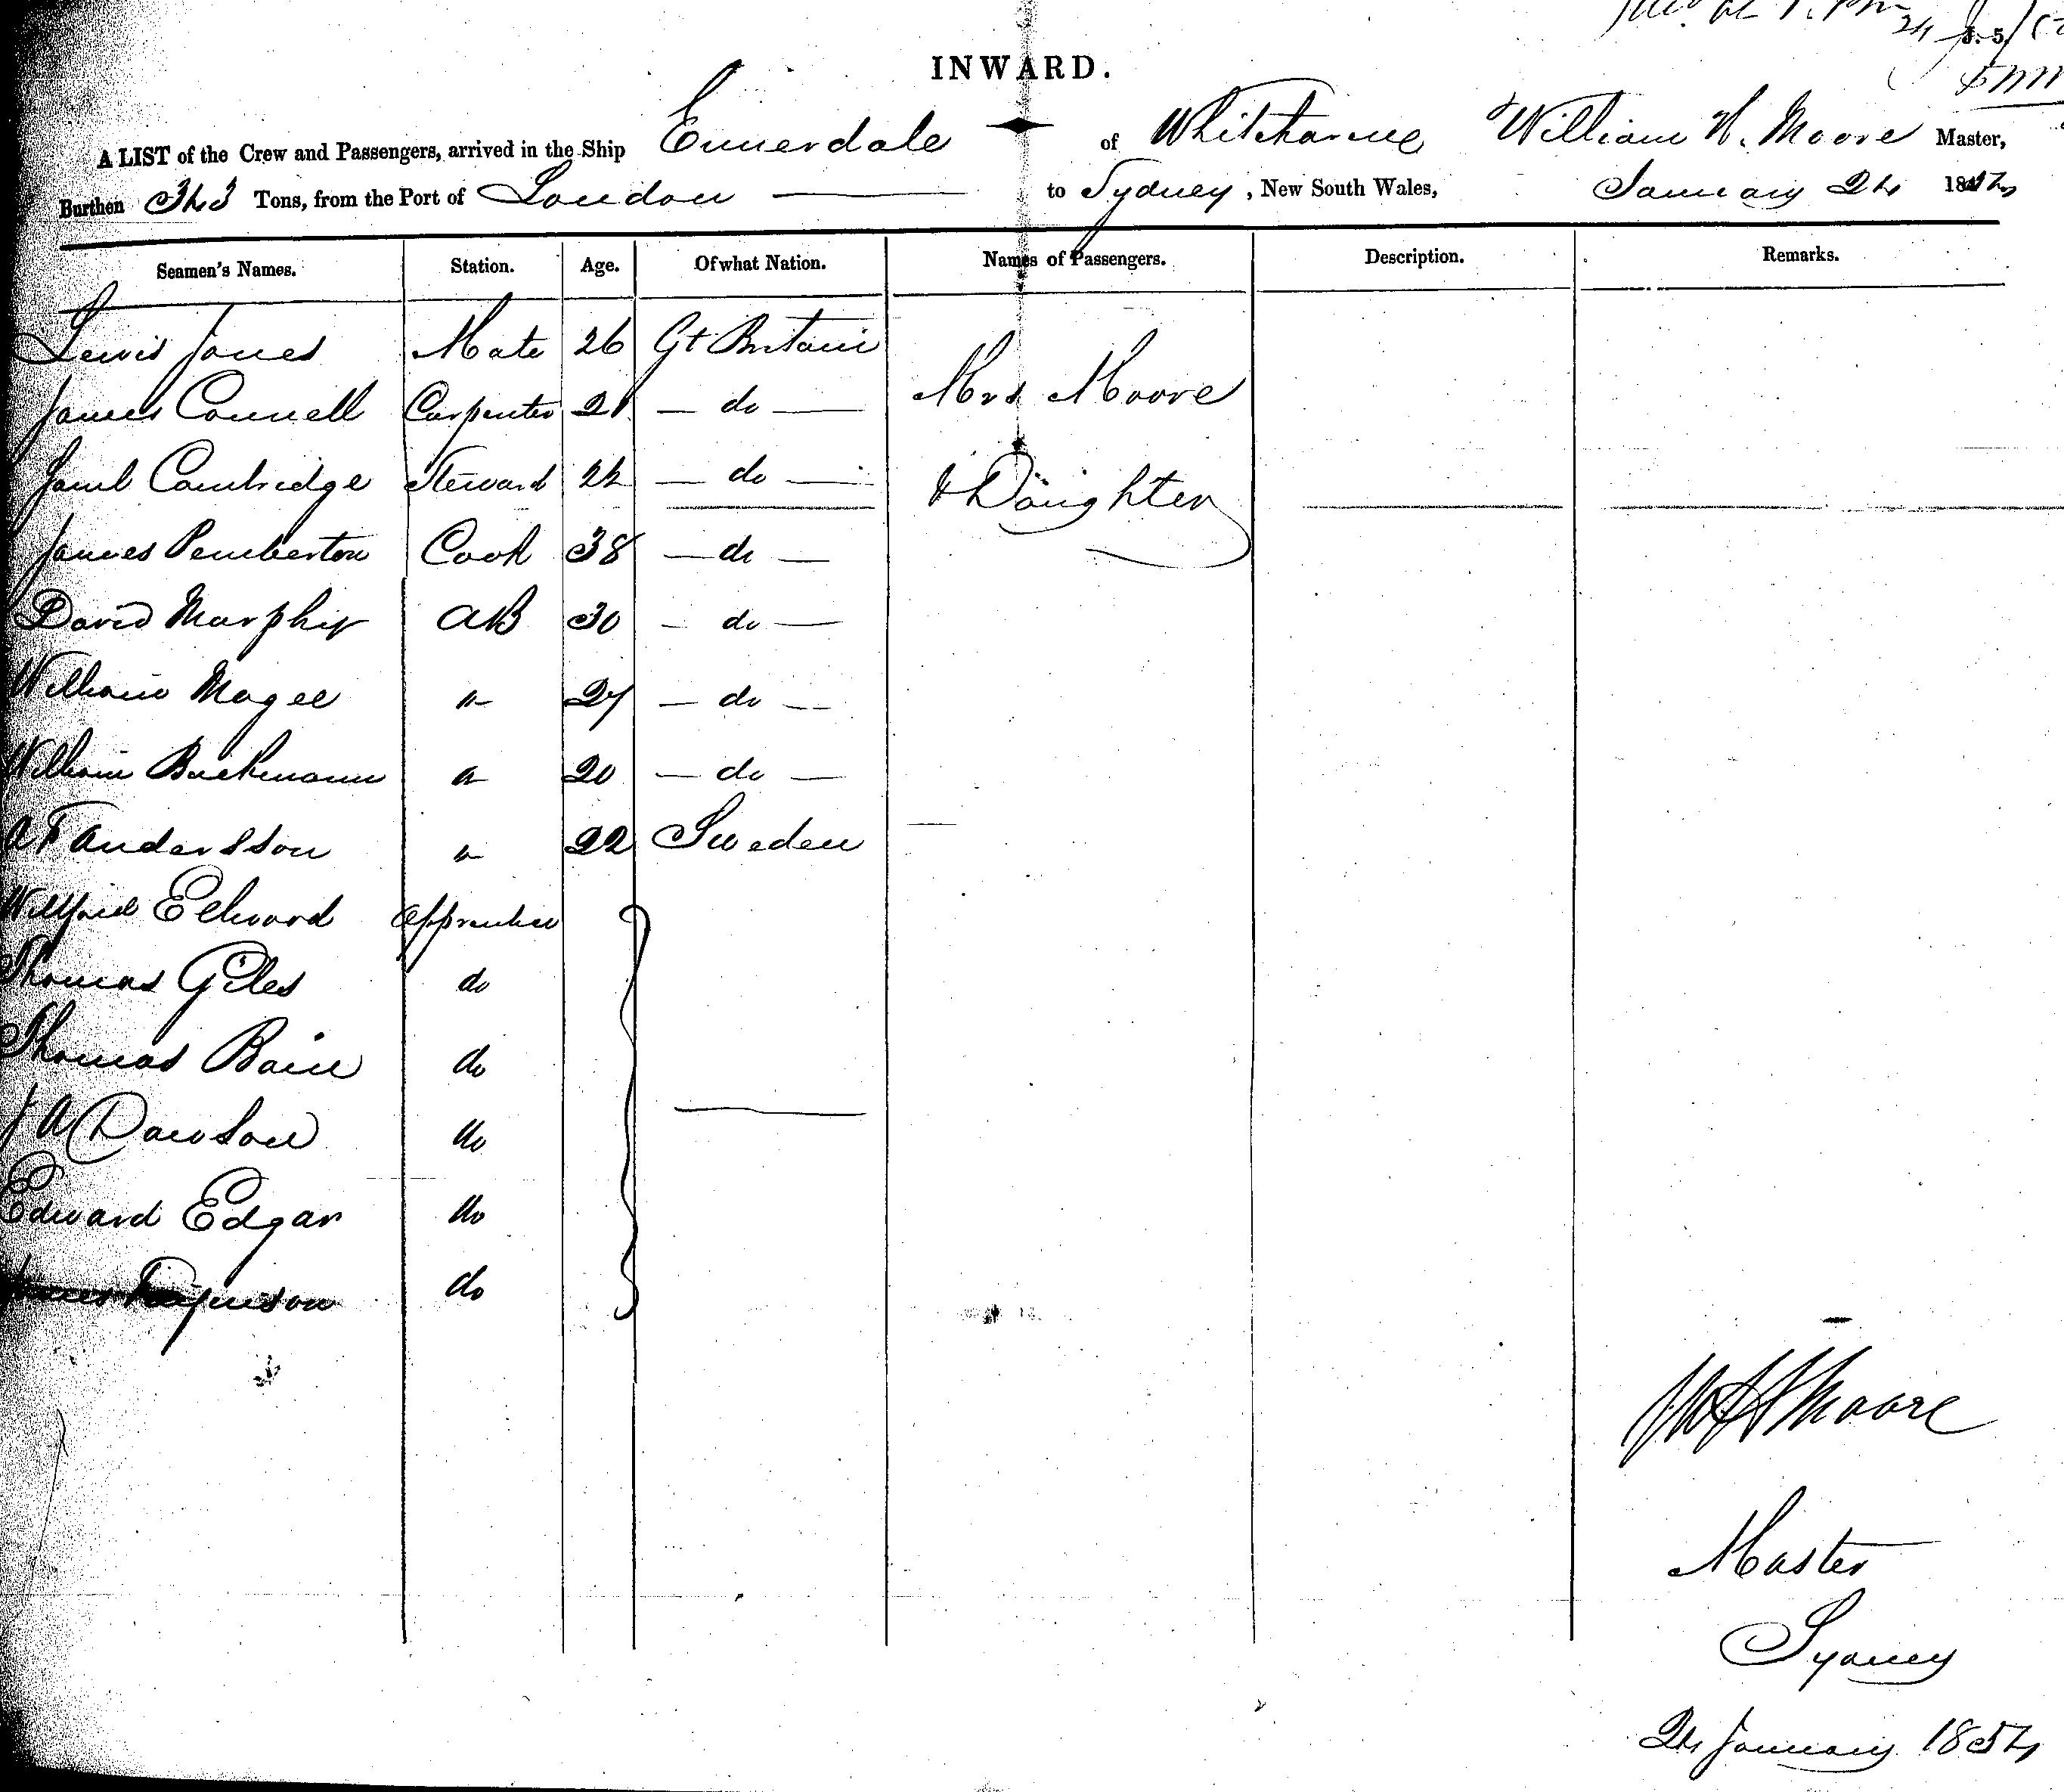 INWARD.
A LIST of the Crew and Passengers, arrived in the Ship Ennerdale of Whitehaven William H. Moore Master,
Burthen 343 Tons, from the Port of London to Sydney, New South Wales, January 24 1854
Seamen's Names. Station. Age. Of what Nation. Names of Passengers. Description. Remarks.
Lewis Jones Mate 26 Gt Britain
James Connell Carpenter 21 — do — Mrs Moore
Saml Cambridge Steward 22 — do — & Daughter
James Pemberton Cook 38 — do —
David Murphy AB 30 — do —
William Magee " 27 — do —
William Buckmann " 20 — do —
A F Andersson " 22 Sweden
Wilfrid Edward Apprentice
Thomas Giles do
Thomas Bain do
J A Dawson do
Edward Edgar do
James Ferguson do
W H Moore
Master
Sydney
24 January 1854